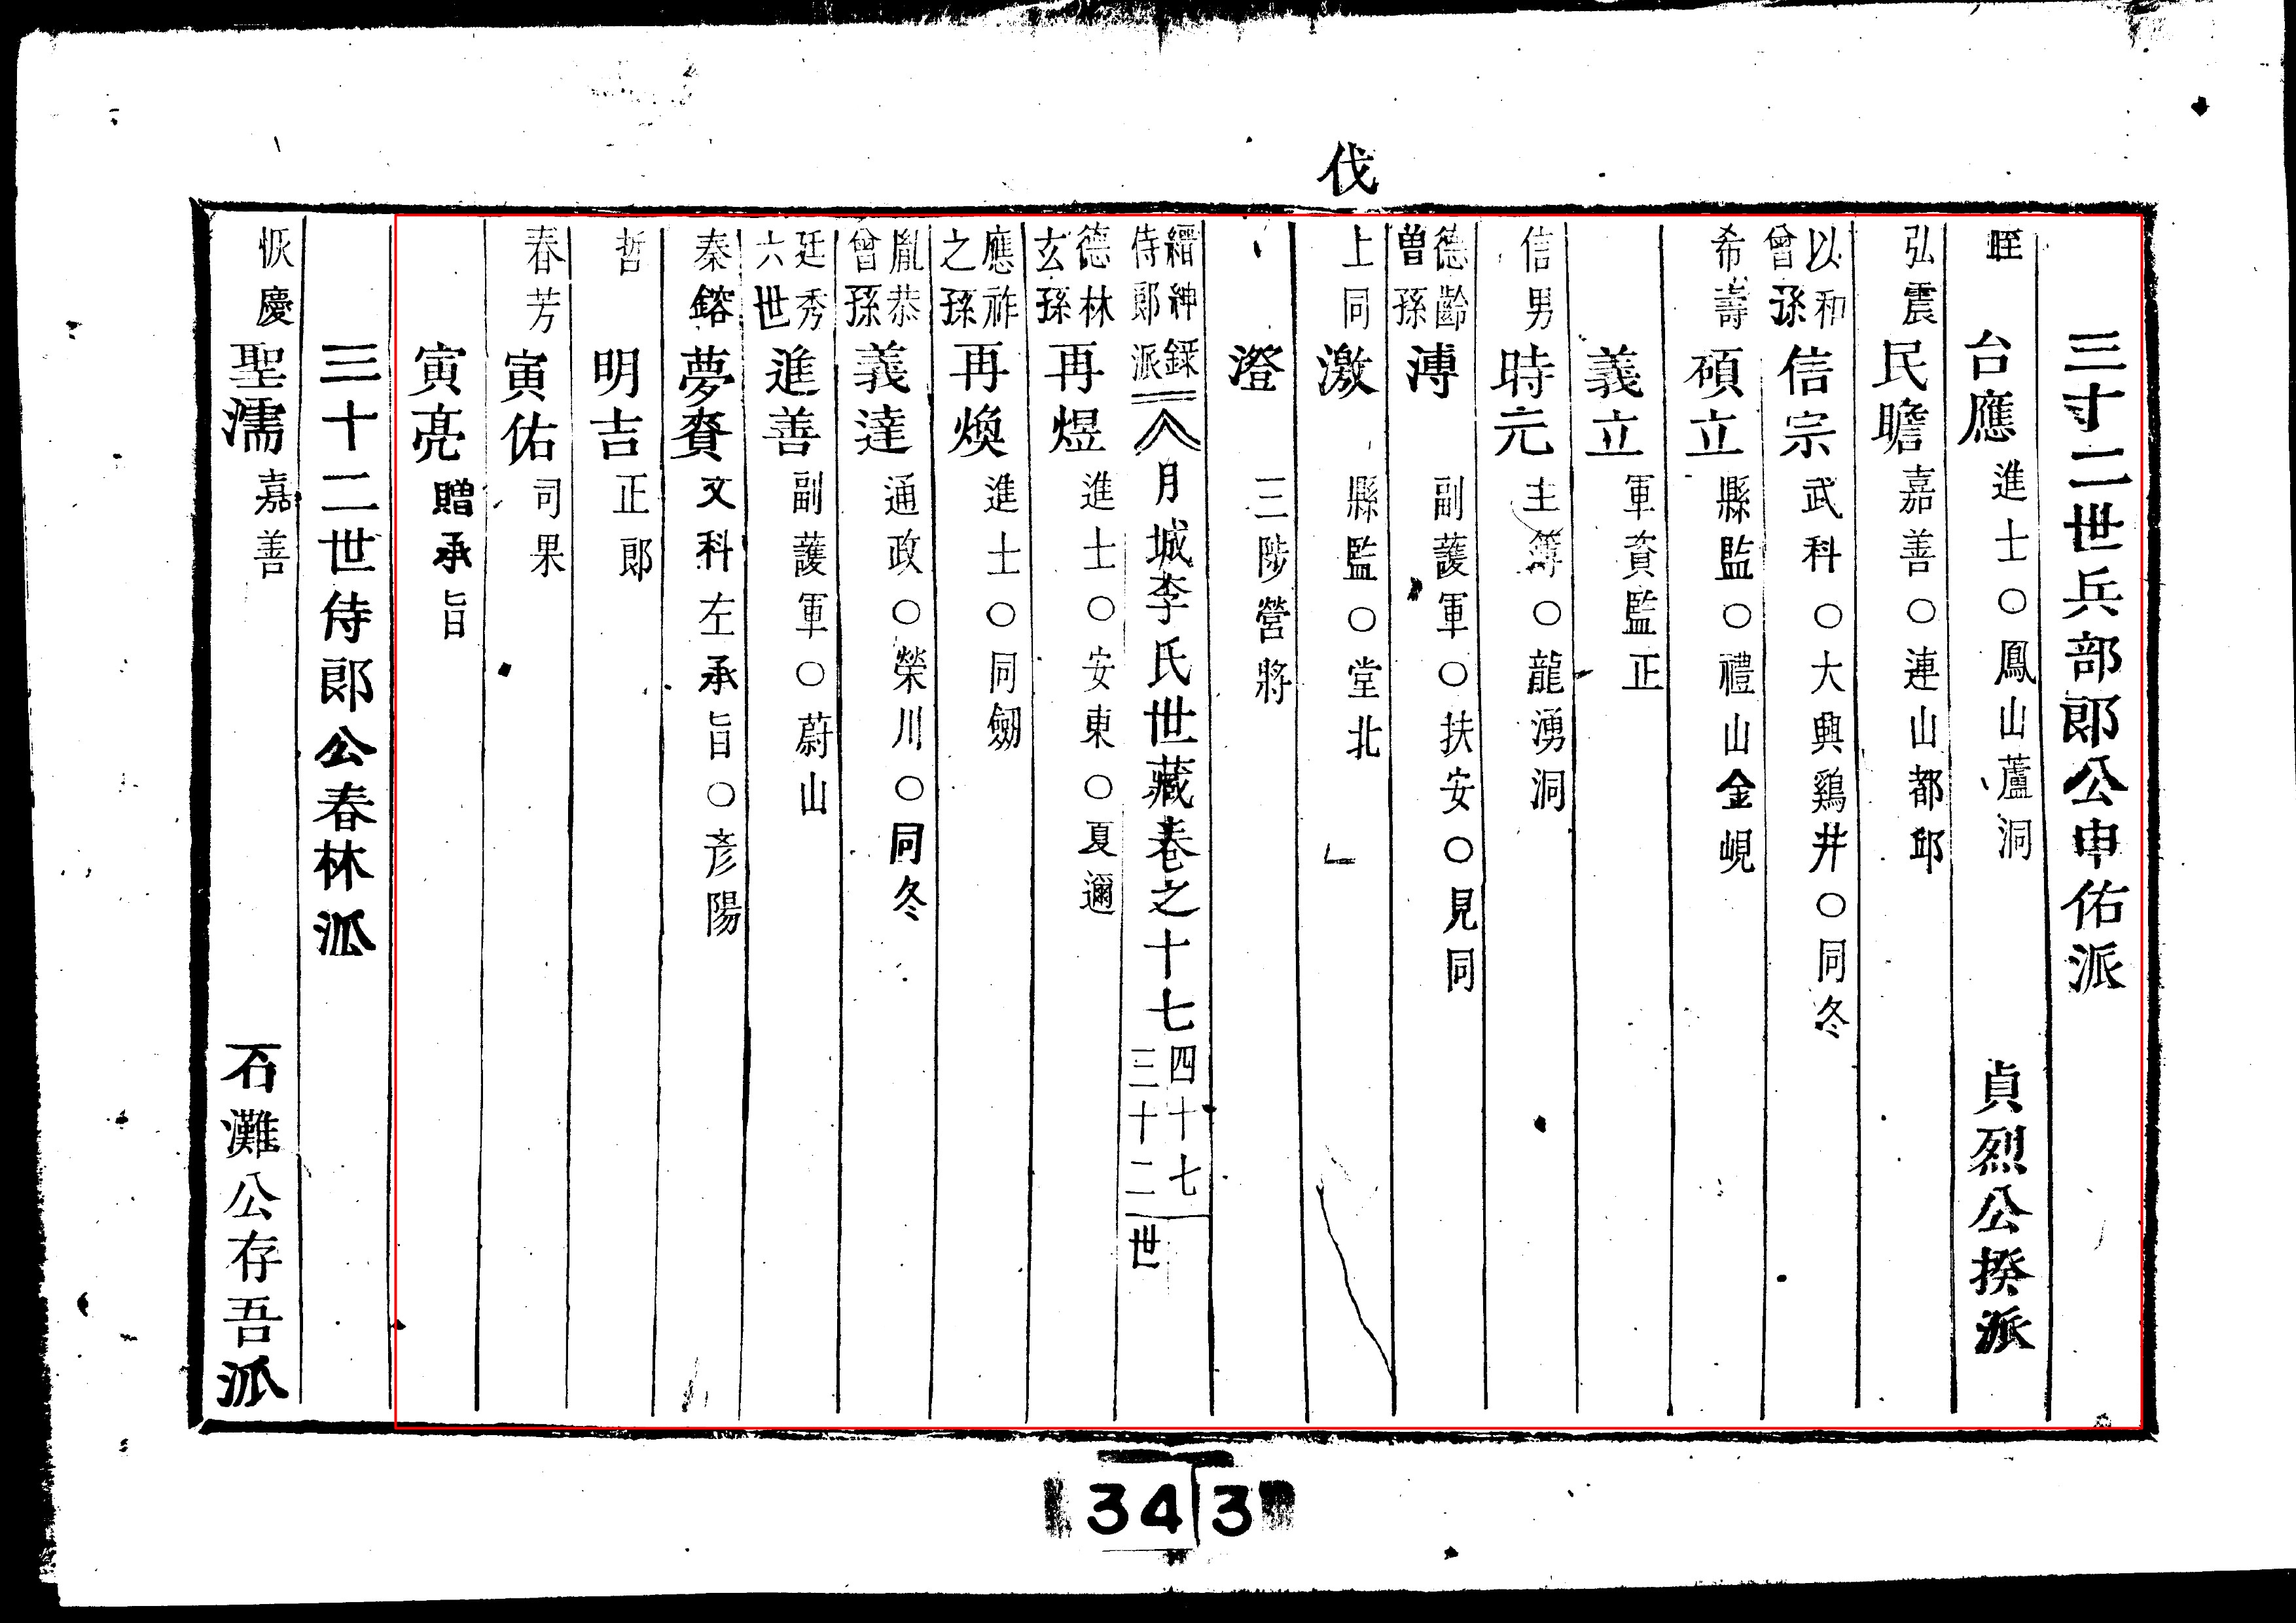 伐
三十二世兵部郎公申佑派
台應 進士○鳳山蘆洞 貞烈公揆派
弘震 民瞻 嘉善○連山都邱
以和曾孫 信宗 武科○大興鷄井○同冬
希壽 碩立 縣監○禮山金峴
義立 軍資監正
信男 時元 主簿○龍湧洞
德齡曾孫 溥 副護軍○扶安○見同
上同 激 縣監○堂北
澄 三陟營將
縉紳錄 侍郎派 月城李氏世藏卷之十七 四十七 三十二世
德林玄孫 再煜 進士○安東○夏邇
應祚之孫 再煥 進士○同
胤恭曾孫 義達 通政○榮川○同冬
廷秀六世 進善 副護軍○蔚山
秦鎔 夢賚 文科左承旨○彦陽
哲 明吉 正郎
春芳 寅佑 司果
寅亮 贈承旨
三十二世侍郎公春林派
慶 聖濡 嘉善 石灘公存吾派
343